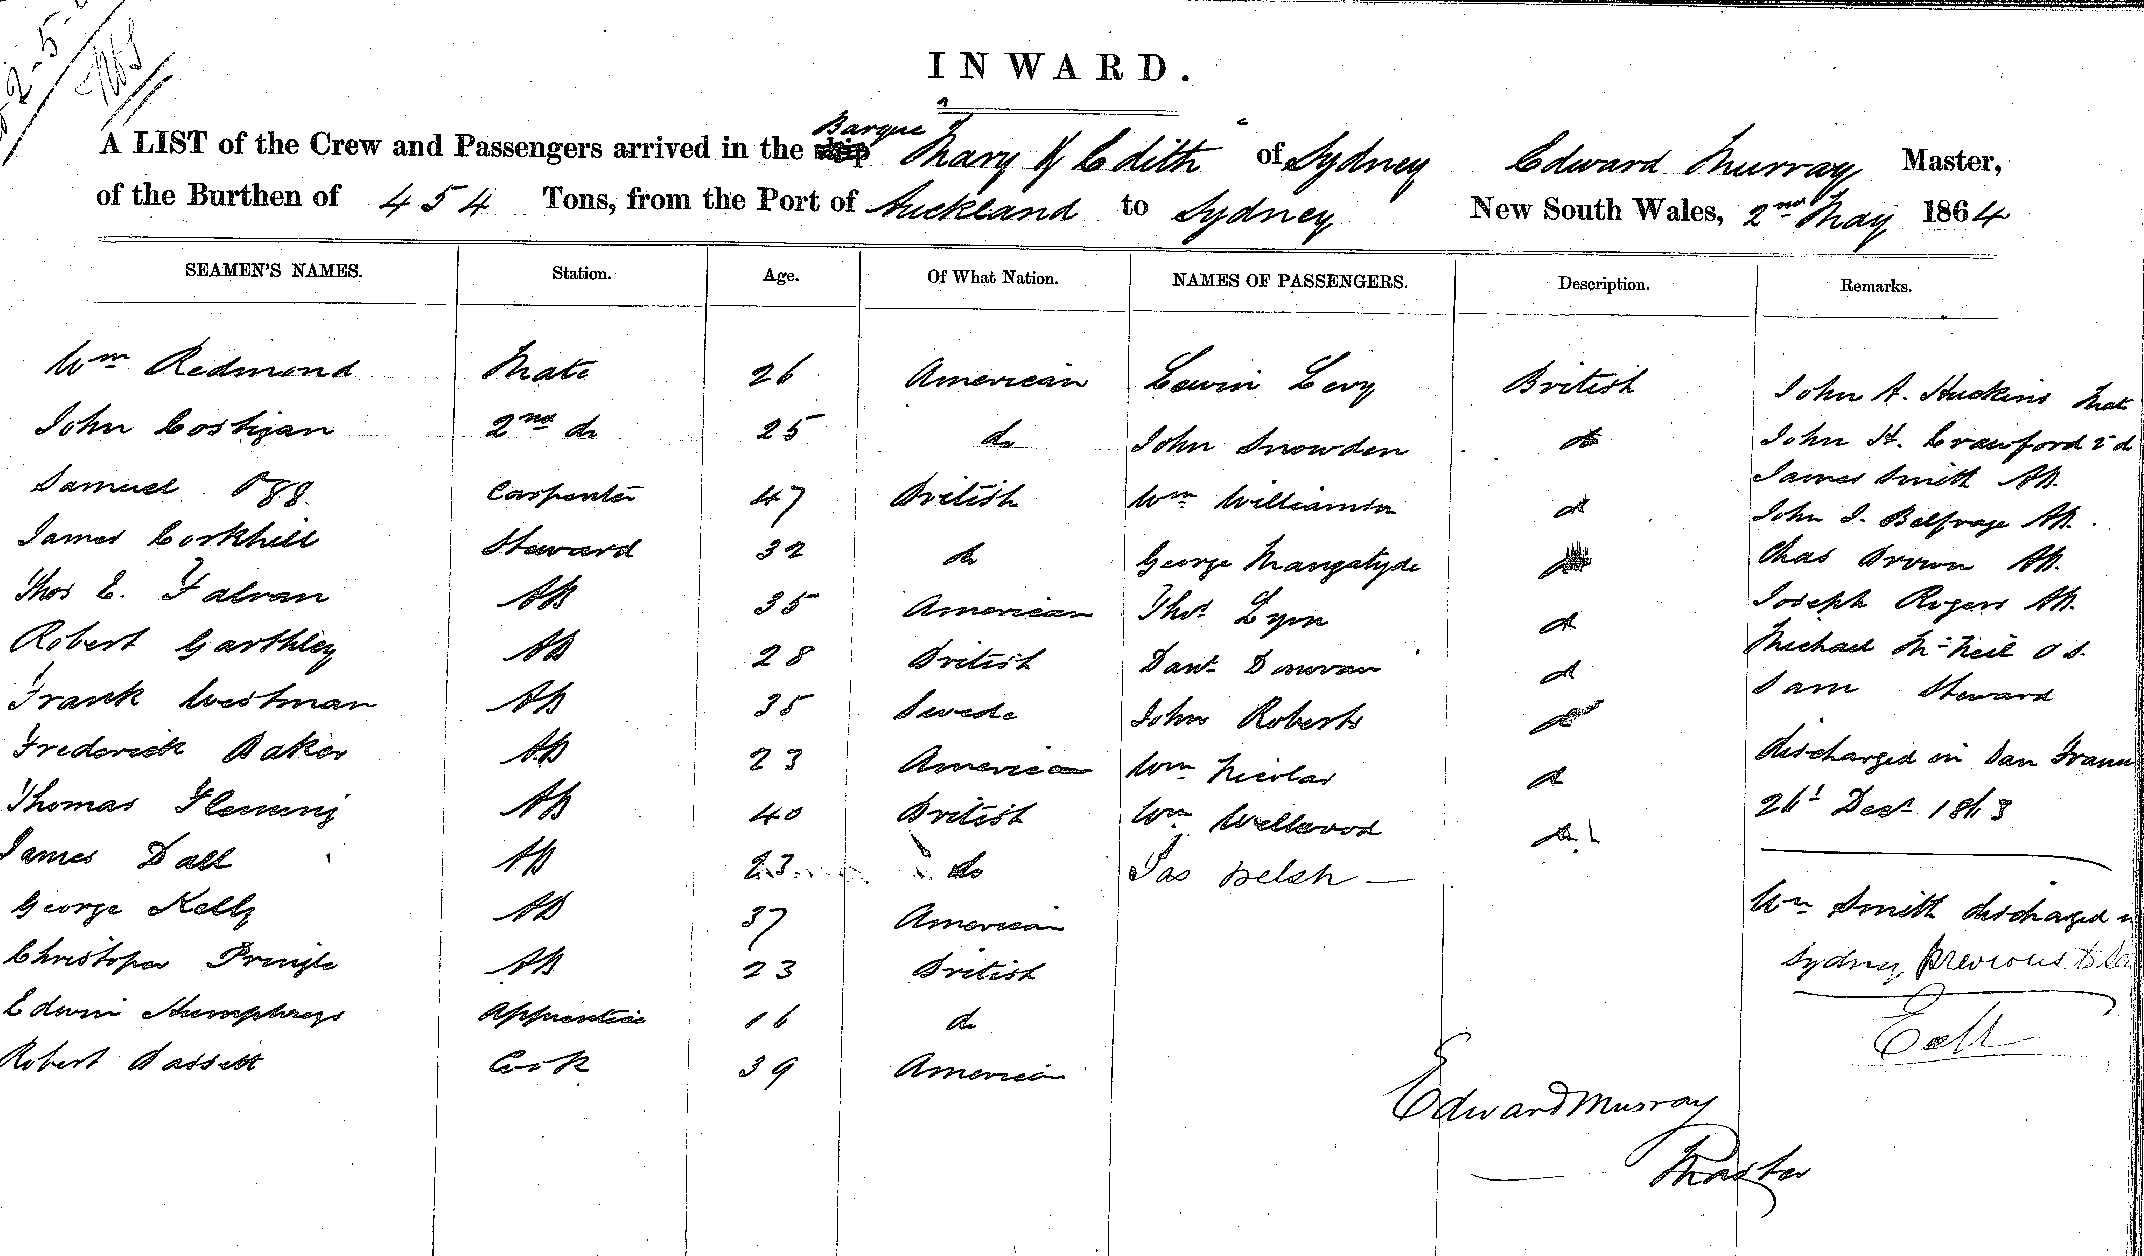 INWARD.
A LIST of the Crew and Passengers arrived in the Barque "Mary & Edith" of Sydney Edward Murray Master,
of the Burthen of 454 Tons, from the Port of Auckland to Sydney New South Wales, 2nd May 1864
SEAMEN'S NAMES. Station. Age. Of What Nation. NAMES OF PASSENGERS. Description. Remarks.
Wm Redmond Mate 26 American Lewin Levy British John A. Huckins Mate
John Costigan 2nd do 25 do John Snowden do John H. Crawford 2 d
Samuel Carpenter 47 British Wm Williamson do James Smith AB.
James Corkhill Steward 32 do George Mangatyde do John J. Belfrage AB.
Thos E. Falvan AB 35 American Thos Lyon do Chas Brown AB.
Robert Garthley AB 28 British Danl Donovan do Joseph Rogers AB.
Frank Westman AB 35 Swede John Roberts do Michael McNeil O S.
Frederick Baker AB 23 American Wm Nicolas do Sam Steward
Thomas Fleming AB 40 British Wm Wellwood do discharged in San
James Dall AB 23 do Jas Welsh — 26t Dect 1863
George Kelly AB 37 American Wm Smith discharged in
Christoper Pringle AB 23 British Sydney previous to
Edwin Humphreys Apprentice 16 do
Robert Bassett Cook 39 American
Edward Murray
Master